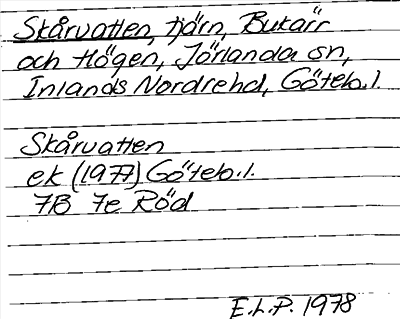 Skårvatten, tjärn, Bukärr
och Högen, Jörlanda sn,
Inlands Nordrehd, Göteb.l.
Skårvatten
ek (1977) Göteb.l.
7B 7e Röd
E.L.P. 1978